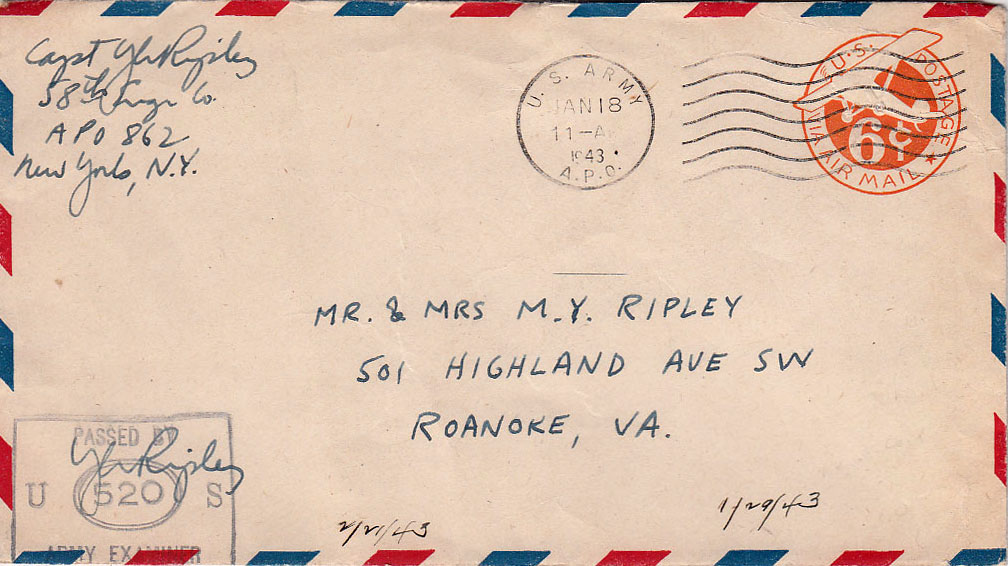 Capt Ripley
58th Engr Co.
APO 862
New York, N.Y.
U.S. ARMY
JAN 18
11-A
1943
A.P.O.
U.S. POSTAGE
6¢
VIA AIR MAIL
MR. & MRS M.Y. RIPLEY
501 HIGHLAND AVE SW
ROANOKE, VA.
PASSED BY
Ripley
U 520 S
ARMY EXAMINER
2/21/43
1/29/43